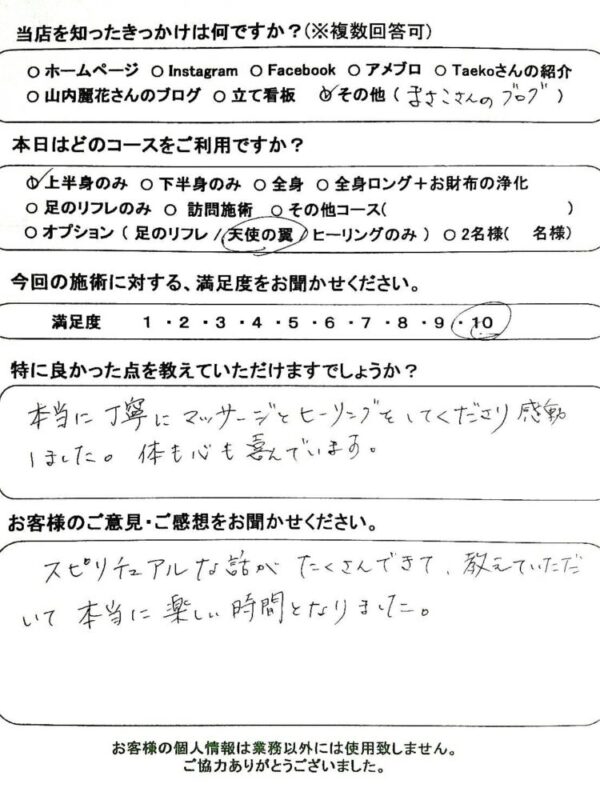 当店を知ったきっかけは何ですか？(※複数回答可)
○ ホームページ ○ Instagram ○ Facebook ○ アメブロ ○ Taekoさんの紹介
○ 山内麗花さんのブログ ○ 立て看板 ○ その他 ( まさこさんのブログ )
本日はどのコースをご利用ですか？
○ 上半身のみ ○ 下半身のみ ○ 全身 ○ 全身ロング＋お財布の浄化
○ 足のリフレのみ ○ 訪問施術 ○ その他コース( )
○ オプション ( 足のリフレ / 天使の翼 / ヒーリングのみ ) ○ 2名様( 名様)
今回の施術に対する、満足度をお聞かせください。
満足度 1 ・ 2 ・ 3 ・ 4 ・ 5 ・ 6 ・ 7 ・ 8 ・ 9 ・ 10
特に良かった点を教えていただけますでしょうか？
本当に丁寧にマッサージとヒーリングをしてくださり感動
しました。体も心も喜んでいます。
お客様のご意見・ご感想をお聞かせください。
スピリチュアルな話がたくさんできて、教えていただ
いて本当に楽しい時間となりました。
お客様の個人情報は業務以外には使用致しません。
ご協力ありがとうございました。